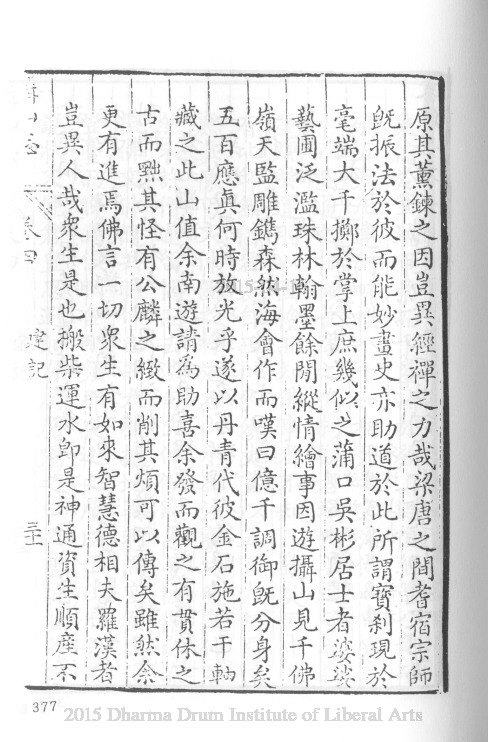 原其薰鍊之因豈異經禪之力哉梁唐之間耆宿宗師
旣振法於彼而能妙畫史亦助道於此所謂寶刹現於
毫端大千擲於掌上庶幾似之蒲口吳彬居士者婆娑
藝圃泛濫珠林翰墨餘閒縱情繪事因遊攝山見千佛
嶺天監雕鐫森然海會作而嘆曰億千調御旣分身矣
五百應眞何時放光乎遂以丹青代彼金石施若干軸
藏之此山值余南遊請為助喜余發而觀之有貫休之
古而黜其怪有公麟之緻而削其煩可以傳矣雖然余
更有進焉佛言一切衆生有如來智慧德相夫羅漢者
豈異人哉衆生是也搬柴運水卽是神通資生順產不
卷四
建記
377
2015 Dharma Drum Institute of Liberal Arts